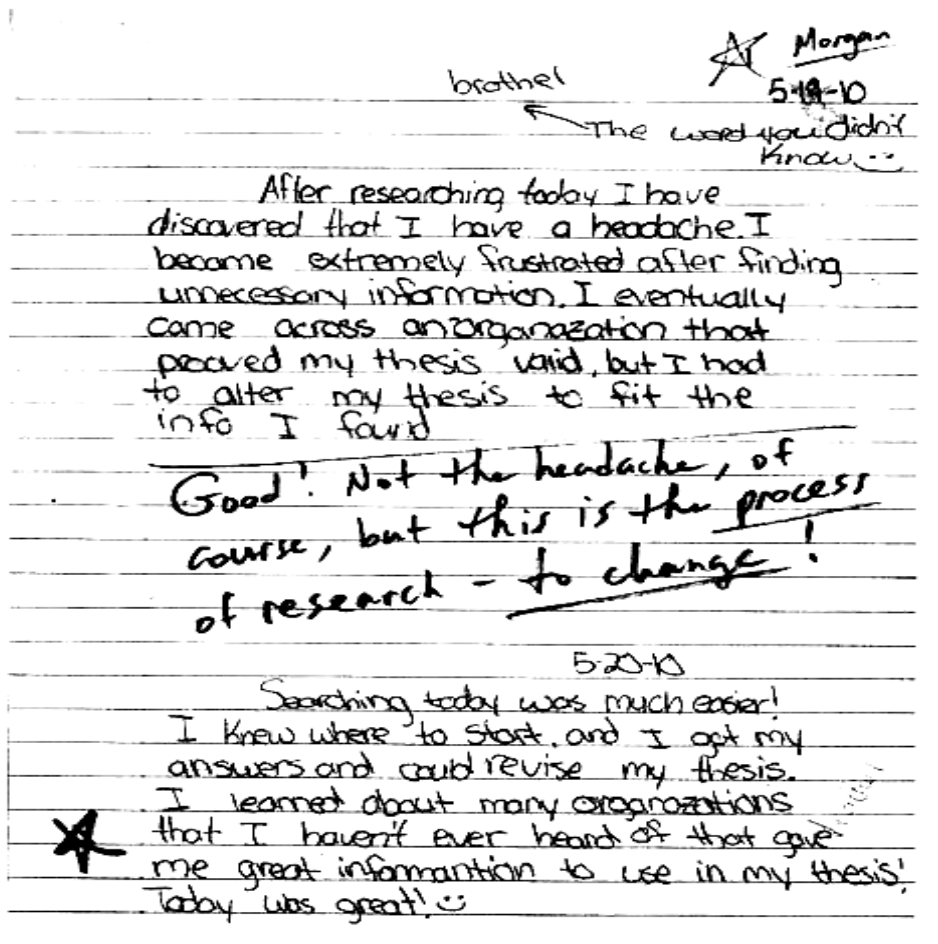 Morgan
brothel
5-19-10
The word you didn't
Know :)
After researching today I have
discovered that I have a headache. I
became extremely frustrated after finding
unnecessary information. I eventually
came across an organazation that
prooved my thesis valid, but I had
to alter my thesis to fit the
info I found
Good! Not the headache, of
course, but this is the process
of research - to change!
5-20-10
Searching today was much easier!
I Knew where to start, and I got my
answers and could revise my thesis.
I learned about many organazations
that I haven't ever heard of that gave
me great informantion to use in my thesis!
Today was great! :)